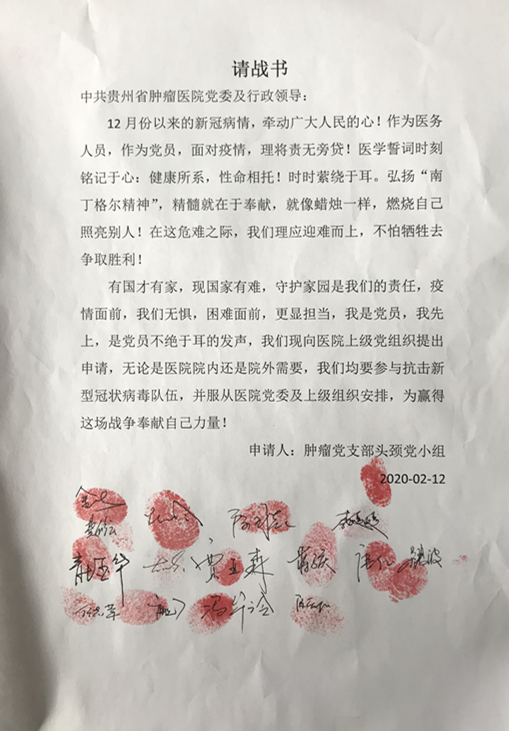 请战书
中共贵州省肿瘤医院党委及行政领导：
12月份以来的新冠病情，牵动广大人民的心！作为医务
人员，作为党员，面对疫情，理将责无旁贷！医学誓词时刻
铭记于心：健康所系，性命相托！时时萦绕于耳。弘扬“南
丁格尔精神”，精髓就在于奉献，就像蜡烛一样，燃烧自己
照亮别人！在这危难之际，我们理应迎难而上，不怕牺牲去
争取胜利！
有国才有家，现国家有难，守护家园是我们的责任，疫
情面前，我们无惧，困难面前，更显担当，我是党员，我先
上，是党员不绝于耳的发声，我们现向医院上级党组织提出
申请，无论是医院院内还是院外需要，我们均要参与抗击新
型冠状病毒队伍，并服从医院党委及上级组织安排，为赢得
这场战争奉献自己力量！
申请人：肿瘤党支部头颈党小组
2020-02-12